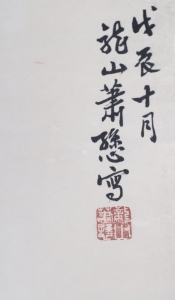 戊辰十月
龍山蕭愻寫